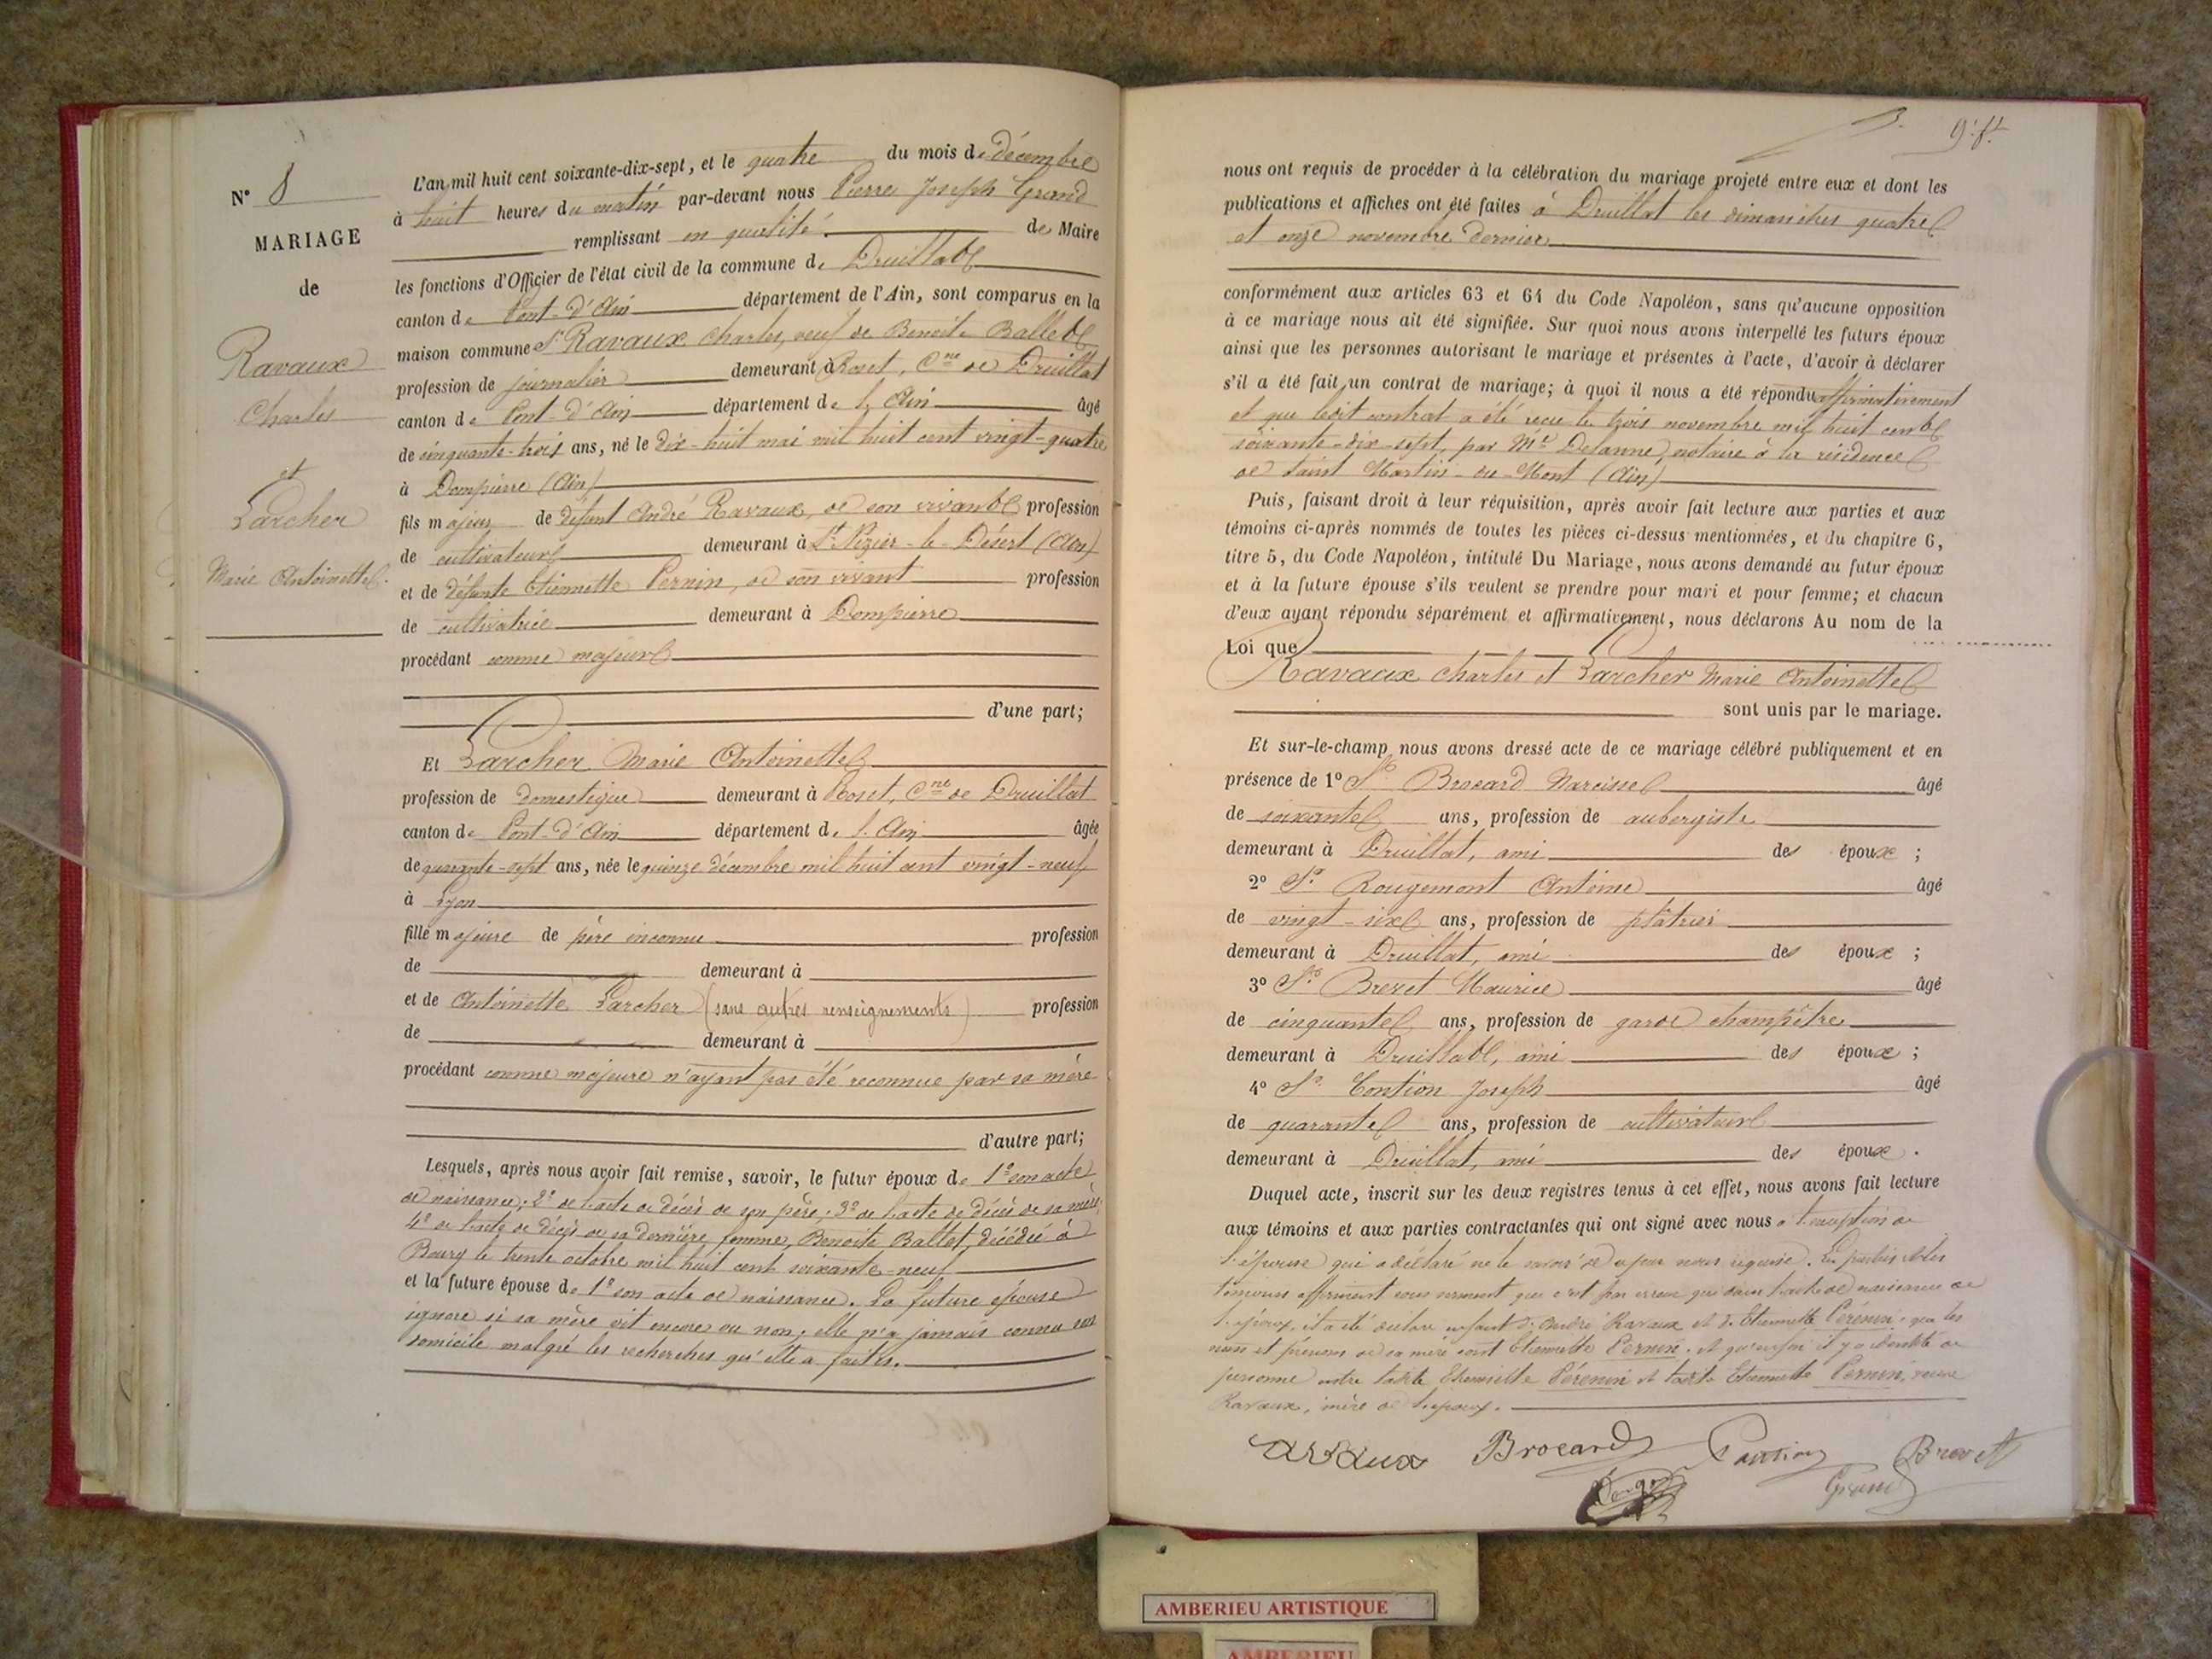 N° 8
MARIAGE
de
Ravaux
Charles
et
Larcher
Marie Antoinette
L'an mil huit cent soixante-dix-sept, et le quatre du mois de décembre
à huit heures du matin par-devant nous Pierre Joseph Grand
remplissant en qualité de Maire
les fonctions d'Officier de l'état civil de la commune de Druillat
canton de Pont-d'Ain département de l'Ain, sont comparus en la
maison commune Sr Ravaux Charles, veuf de Benoite Ballet
profession de journalier demeurant à Roset, Cne de Druillat
canton de Pont-d'Ain département de l'Ain âgé
de cinquante-trois ans, né le dix-huit mai mil huit cent vingt-quatre
à Dompierre (Ain)
fils majeur de défunt André Ravaux, de son vivant profession
de cultivateur demeurant à St Nizier-le-Désert (Ain)
et de défunte Etiennette Pernin, de son vivant profession
de cultivatrice demeurant à Dompierre
procédant comme majeur
d'une part;
Et Larcher Marie Antoinette
profession de domestique demeurant à Roset, Cne de Druillat
canton de Pont-d'Ain département de l'Ain âgée
de quarante-sept ans, née le quinze décembre mil huit cent vingt-neuf
à Lyon
fille majeure de père inconnu profession
de demeurant à
et de Antoinette Larcher (sans autres renseignements) profession
de demeurant à
procédant comme majeure n'ayant pas été reconnue par sa mère
d'autre part;
Lesquels, après nous avoir fait remise, savoir, le futur époux de 1° son acte
de naissance; 2° de l'acte de décès de son père; 3° de l'acte de décès de sa mère;
4° de l'acte de décès de sa dernière femme, Benoite Ballet, décédée à
Bourg le trente octobre mil huit cent soixante-neuf
et la future épouse de 1° son acte de naissance. La future épouse
ignore si sa mère vit encore ou non; elle n'a jamais connu son
domicile malgré les recherches qu'elle a faites.
nous ont requis de procéder à la célébration du mariage projeté entre eux et dont les
publications et affiches ont été faites à Druillat les dimanches quatre
et onze novembre dernier
conformément aux articles 63 et 64 du Code Napoléon, sans qu'aucune opposition
à ce mariage nous ait été signifiée. Sur quoi nous avons interpellé les futurs époux
ainsi que les personnes autorisant le mariage et présentes à l'acte, d'avoir à déclarer
s'il a été fait un contrat de mariage; à quoi il nous a été répondu affirmativement
et que ledit contrat a été reçu le trois novembre mil huit cent
soixante-dix-sept, par Me Delanne, notaire à la résidence
de Saint Martin-du-Mont (Ain)
Puis, faisant droit à leur réquisition, après avoir fait lecture aux parties et aux
témoins ci-après nommés de toutes les pièces ci-dessus mentionnées, et du chapitre 6,
titre 5, du Code Napoléon, intitulé Du Mariage, nous avons demandé au futur époux
et à la future épouse s'ils veulent se prendre pour mari et pour femme; et chacun
d'eux ayant répondu séparément et affirmativement, nous déclarons Au nom de la
Loi que
Ravaux Charles et Larcher Marie Antoinette
sont unis par le mariage.
Et sur-le-champ nous avons dressé acte de ce mariage célébré publiquement et en
présence de 1° Sr Brocard Narcisse âgé
de soixante ans, profession de aubergiste
demeurant à Druillat, ami des époux ;
2° Sr Rougemont Antoine âgé
de vingt-six ans, profession de plâtrier
demeurant à Druillat, ami des époux ;
3° Sr Brevet Maurice âgé
de cinquante ans, profession de garde champêtre
demeurant à Druillat, ami des époux ;
4° Sr Contion Joseph âgé
de quarante ans, profession de cultivateur
demeurant à Druillat, ami des époux .
Duquel acte, inscrit sur les deux registres tenus à cet effet, nous avons fait lecture
aux témoins et aux parties contractantes qui ont signé avec nous à l'exception de
l'épouse qui a déclaré ne le savoir de ce par nous requise. Les parties et les
témoins affirment sous serment que c'est par erreur que dans l'acte de naissance de
l'époux, il a été déclaré enfant d'André Ravaux et de Etiennette Pérénin; que les
nom et prénoms de sa mère sont Etiennette Pernin. et qu'enfin il y a identité de
personne entre ladite Etiennette Pérénin et ladite Etiennette Pernin, veuve
Ravaux, mère de l'époux.
Ravaux Brocard Contion Brevet
Grand
AMBERIEU ARTISTIQUE
AMBERIEU